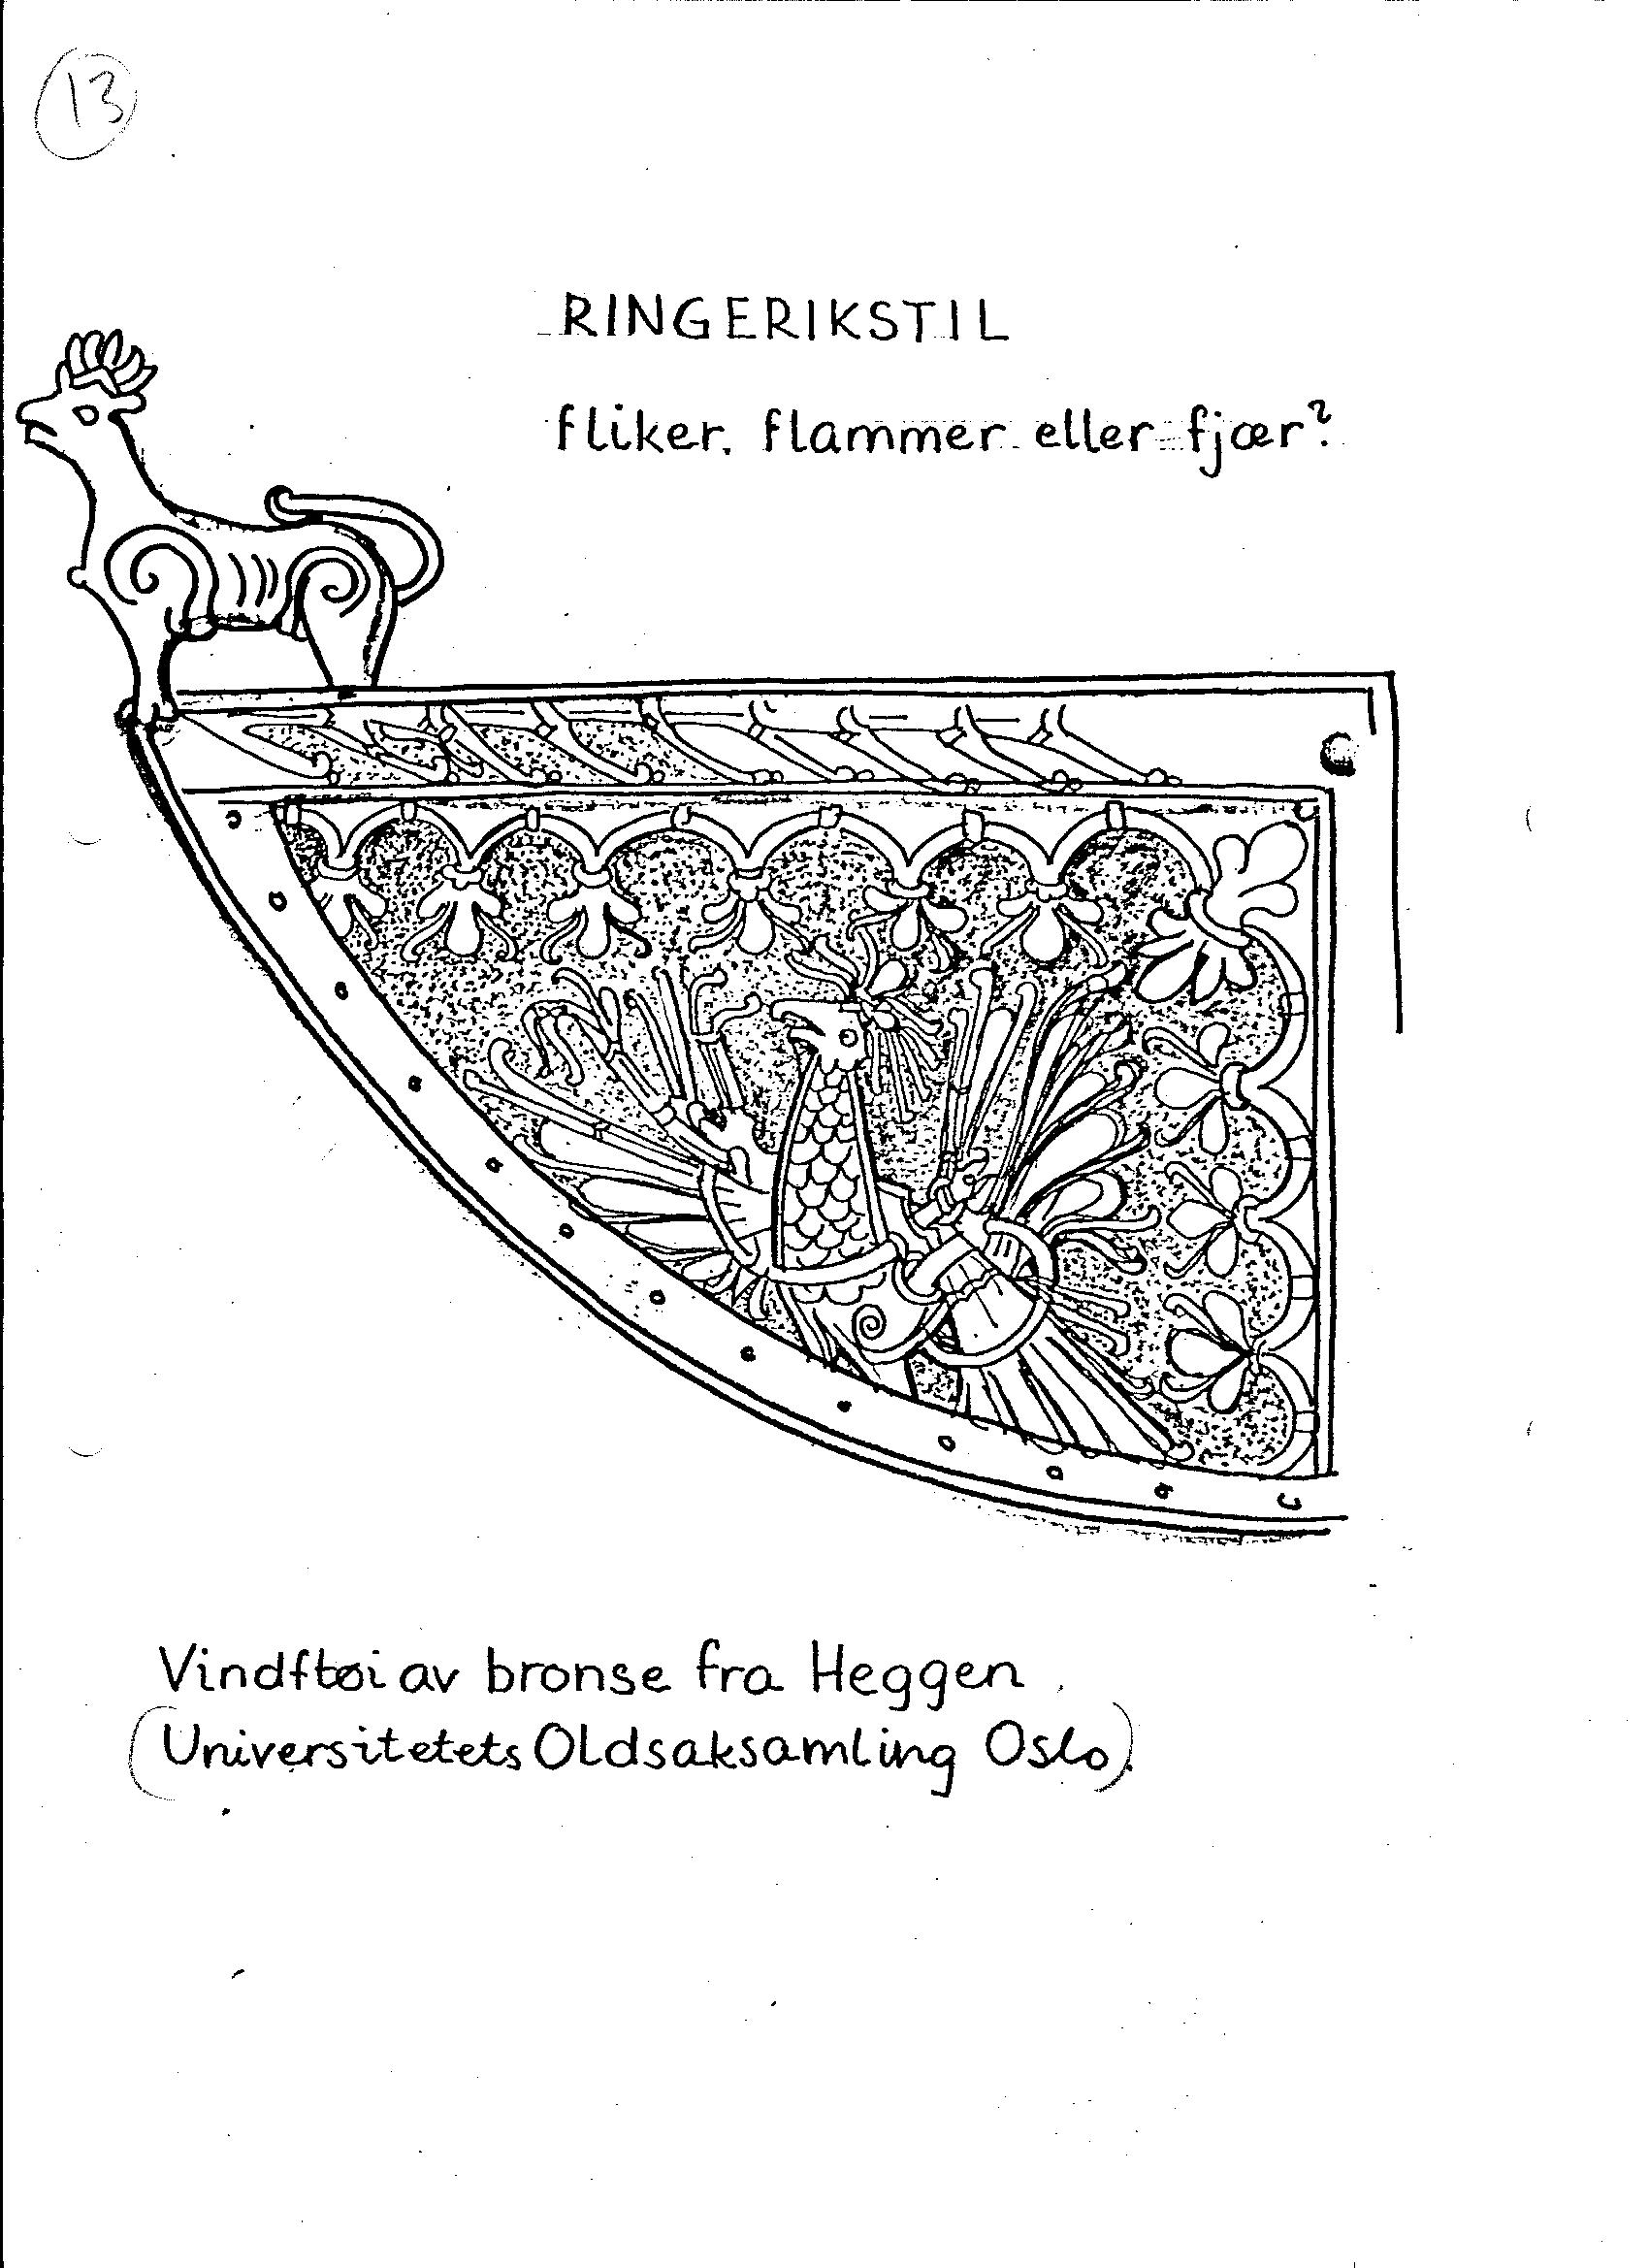 13
RINGERIKSTIL
fliker, flammer eller fjær?
Vindfløi av bronse fra Heggen.
(Universitetets Oldsaksamling Oslo).